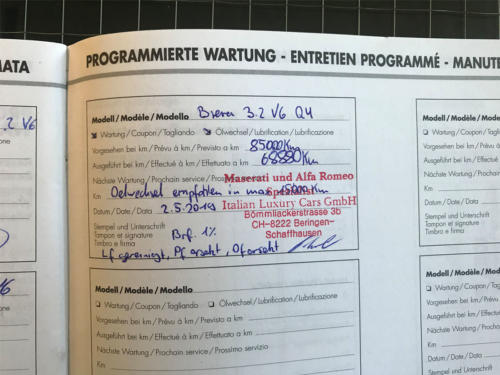 MATA
PROGRAMMIERTE WARTUNG - ENTRETIEN PROGRAMMÉ - MANUTE
.2 V6
Modell/Modèle/Modello Brera 3.2 V6 Q4
Wartung/Coupon/Tagliando Ölwechsel/Lubrification/Lubrificazione
Vorgesehen bei km/Prévu à km/Previsto a km 85000Km
Ausgeführt bei km/Effectué à km/Effettuato a km 68880Km
Nächste Wartung/Prochain service/Prossimo
Maserati und Alfa Romeo
Spezialist
Km Oelwechsel empfohlen in max 15000Km
Datum/Date/Data 2.5.2019
Italian Luxury Cars GmbH
Bömmliackerstrasse 3b
CH-8222 Beringen-
Schaffhausen
Stempel und Unterschrift
Tampon et signature
Timbro e firma
Brf. 1%
Lf gereinigt, Pf ersetzt, Of ersetzt
Modell/Modèle/Modello
Wartung/Coupon/Tagliando Ölwechsel/Lubrification/Lubrificazione
Vorgesehen bei km/Prévu à km/Previsto a km
Ausgeführt bei km/Effectué à km/Effettuato a km
Nächste Wartung/Prochain service/Prossimo servizio
Km
Datum/Date/Data
Stempel und Unterschrift
Modell/Modèle
Wartung/Co
Vorgesehen bei k
Ausgeführt bei km
Nächste Wartung
Km
Datum/Date/Da
Stempel und Unters
Tampon et signatur
Timbro e firma
Modell/Modèle
Wartung/C
Vorgesehen bei
Ausgeführt bei k
Nächste Wartun
Km